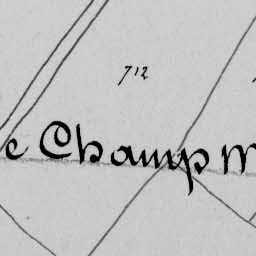 712
e Champ m